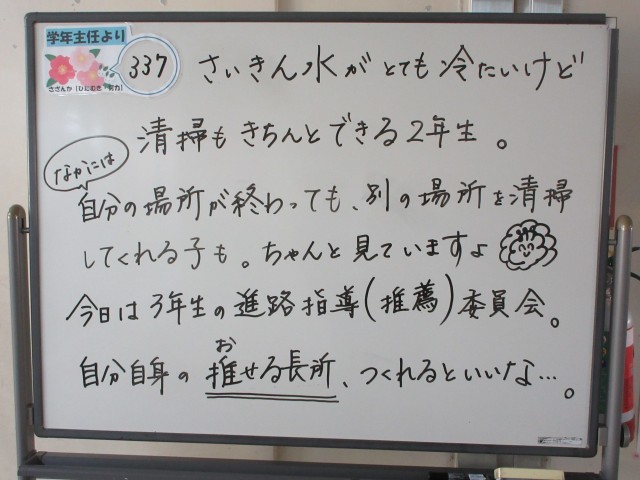 学年主任より
337
さざんか「ひたむき
さいきん水がとても冷たいけど
清掃もきちんとできる2年生。
なかには
自分の場所が終わっても、別の場所を清掃
してくれる子も。ちゃんと見ていますよ
今日は3年生の進路指導(推薦)委員会。
お
自分自身の推せる長所、つくれるといいな…。